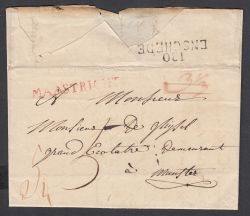 120
ENSCHEDÉ
MAASTRICHT
A Monsieur
Monsieur De
grand Ecolatre demeurant
à Munster